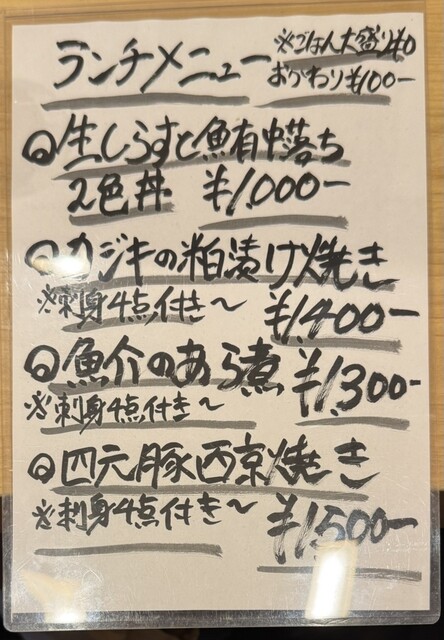 ランチメニュー
※ごはん大盛り¥0
おかわり¥100-
生しらすと鮪中落ち
2色丼 ¥1,000-
カジキの粕漬け焼き
※刺身4点付き〜 ¥1,400-
魚介のあら煮 ¥1,300-
※刺身4点付き〜
四元豚西京焼き
※刺身4点付き〜 ¥1,500-